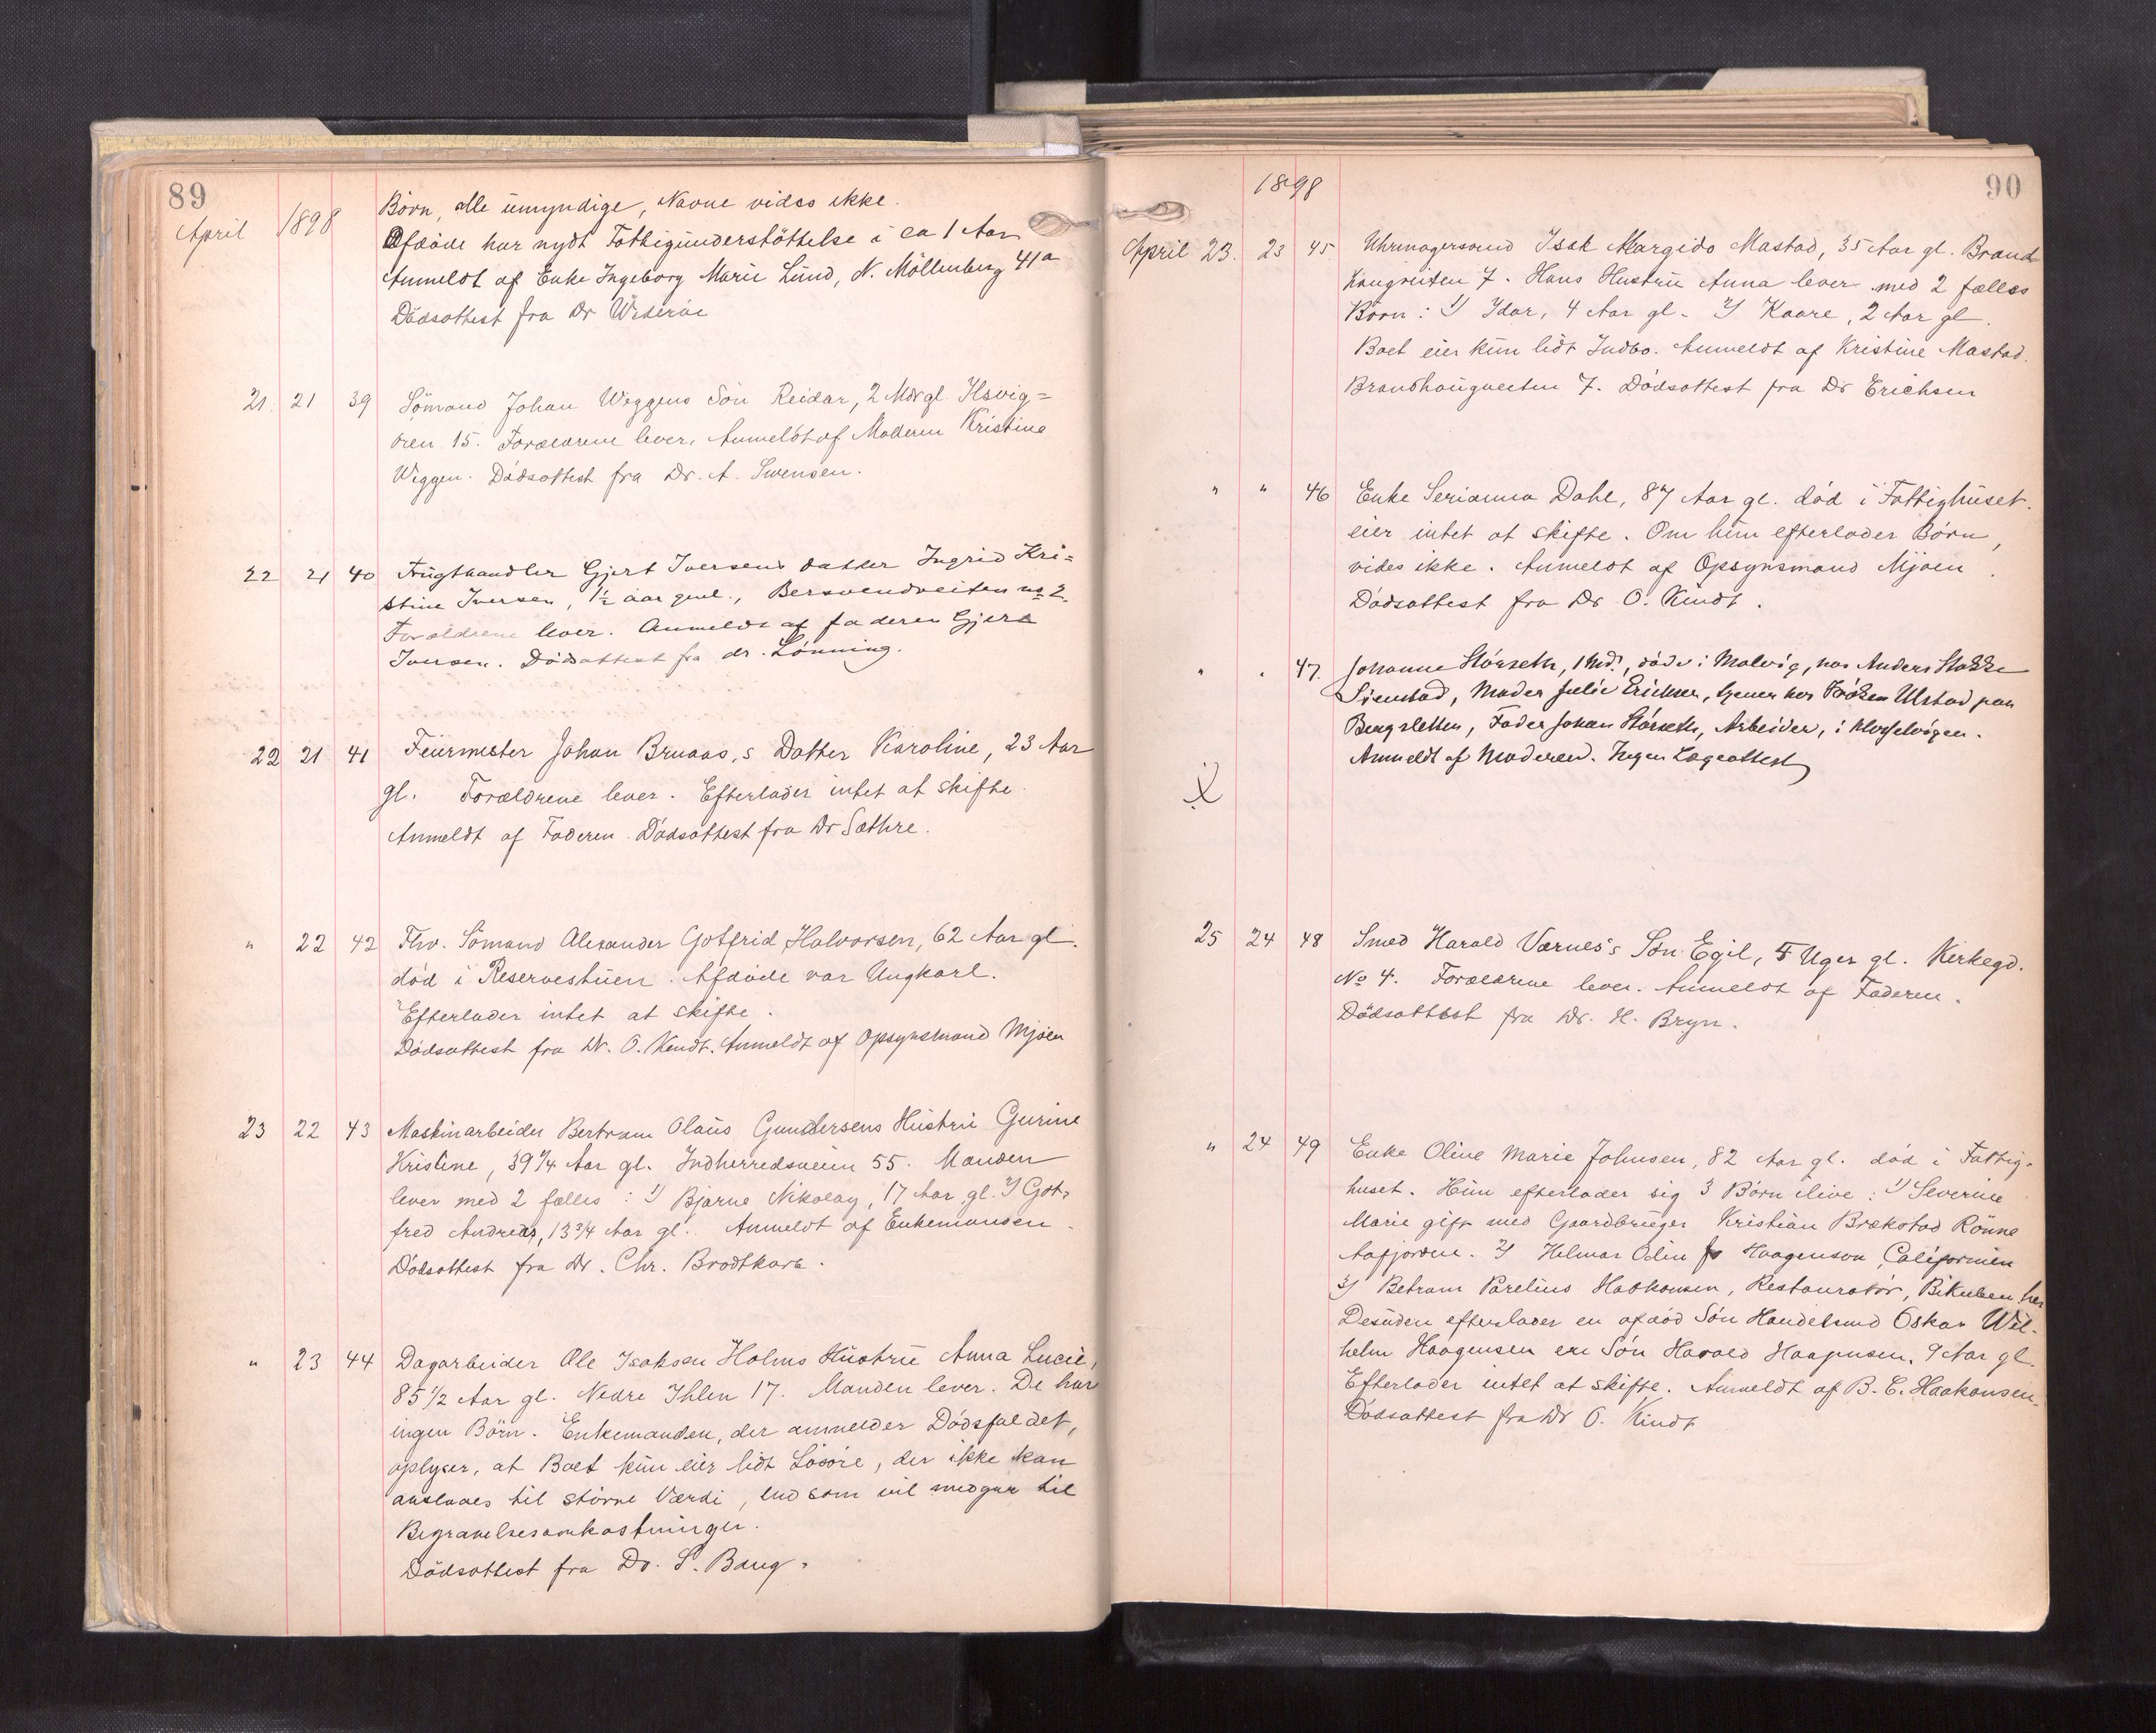 89
April 1898
Börn, alle umyndige, Navne vides ikke.
Afdöde har nydt Fattigunderstöttelse i ca 1 Aar
Anmeldt af Enke Ingeborg Marie Lund, N. Möllenberg 41a
Dödsattest fra Dr
21. 21 39 Sömand Johan Wiggens Sön Reidar, 2 Mdr gl. Ilsvig=
ören 15. Forældrene lever. Anmeldt af Moderen Kristine
Wiggen. Dödsattest fra Dr. A. Svensen.
22 21 40 Frugthandler Gjert Iversens datter Ingrid Kri=
stine Iversen, 1½ aar gml., Bersvendveiten no 2.
Forældrene lever. Anmeldt af faderen Gjert
Iversen. Dödsattest fra dr. Lönning.
22 21 41 Feiermester Johan Bruaas,s Datter Karoline, 23 Aar
gl. Forældrene lever. Efterlader intet at skifte.
Anmeldt af Faderen. Dödsattest fra Dr Sæthre.
" 22 42 Fhv. Sömand Alexander Gotfrid Halvorsen, 62 Aar gl.
död i Reservestuen. Afdöde var Ungkarl.
Efterlader intet at skifte.
Dödsattest fra Dr. O. Kindt. Anmeldt af Opsynsmand Mjöen
23 22 43 Maskinarbeider Bertram Olaus Gundersens Hustru Gurine
Kristine, 39 1/4 Aar gl. Indherredsveien 55. Manden
lever med 2 fælles: 1/ Bjarne Nikolay, 17 Aar gl. 2/ Got-
fred Andreas, 13 3/4 Aar gl. Anmeldt af Enkemanden.
Dödsattest fra Dr. Chr. Brodtkorb.
" 23 44 Dagarbeider Ole Isaksen Holms Hustru Anna Lucie,
85 1/2 Aar gl. Nedre Ihlen 17. Manden lever. De har
ingen Börn. Enkemanden, der anmelder Dödsfaldet,
oplyser, at Boet kun eier lidt Lösöre, der ikke kan
ansluaes til större Værdi, end som vil medgaa til
Begravelsesomkostninger.
Dödsattest fra Dr. S. Bang.
90
1898
April 23. 23 45 Uhrmagersvend Isak Margido Mastad, 35 Aar gl. Brand
haugveiten 7. Hans Hustru Anna lever med 2 fælles
Börn: 1/ Idar, 4 Aar gl. 2/ Kaare, 2 Aar gl.
Boet eier kun lidt Indbo. Anmeldt af Kristine Mastad.
Brandhaugveiten 7. Dödsattest fra Dr Erichsen
" " 46 Enke Serianna Dahl, 87 Aar gl. död i Fattighuset.
eier intet at skifte. Om hun efterlader Börn,
vides ikke. Anmeldt af Opsynsmand Mjöen.
Dödsattest fra Dr O. Kindt.
" " 47. Johanne Störseth, 1 Md., döde i Malvig, hos Anders Stokke
Sveenstad, Moder Julie Erichsen, tjener hos Fröken Ulstad paa
Bergsletten, Fader Johan Störseth, Arbeider, i
Anmeldt af Moderen. Ingen Lægeattest
25 24 48 Smed Harald Værnes's Sön Egil, 5 Uger gl. Kirkegd.
No 4. Forældrene lever. Anmeldt af Faderen.
Dödsattest fra Dr. H. Bryn.
" 24 49 Enke Oline Marie Johnsen, 82 Aar gl. död i Fattig-
huset. Hun efterlader sig 3 Börn ilive: 1/ Severine
Marie gift med Gaardbruger Kristian Brækstad Rönne
Aafjorden. 2/ Helmar Odin Haagenson, Californien
3/ Betram Parelius Haakonsen, Restauratör, Bikuben her
Desuden efterlader en afdöd Sön Handelsmd Oskar Wil-
helm Haagensen en Sön Harald Haagensen, 9 Aar gl.
Efterlader intet at skifte. Anmeldt af B. E. Haakonsen.
Dödsattest fra Dr O. Kindt